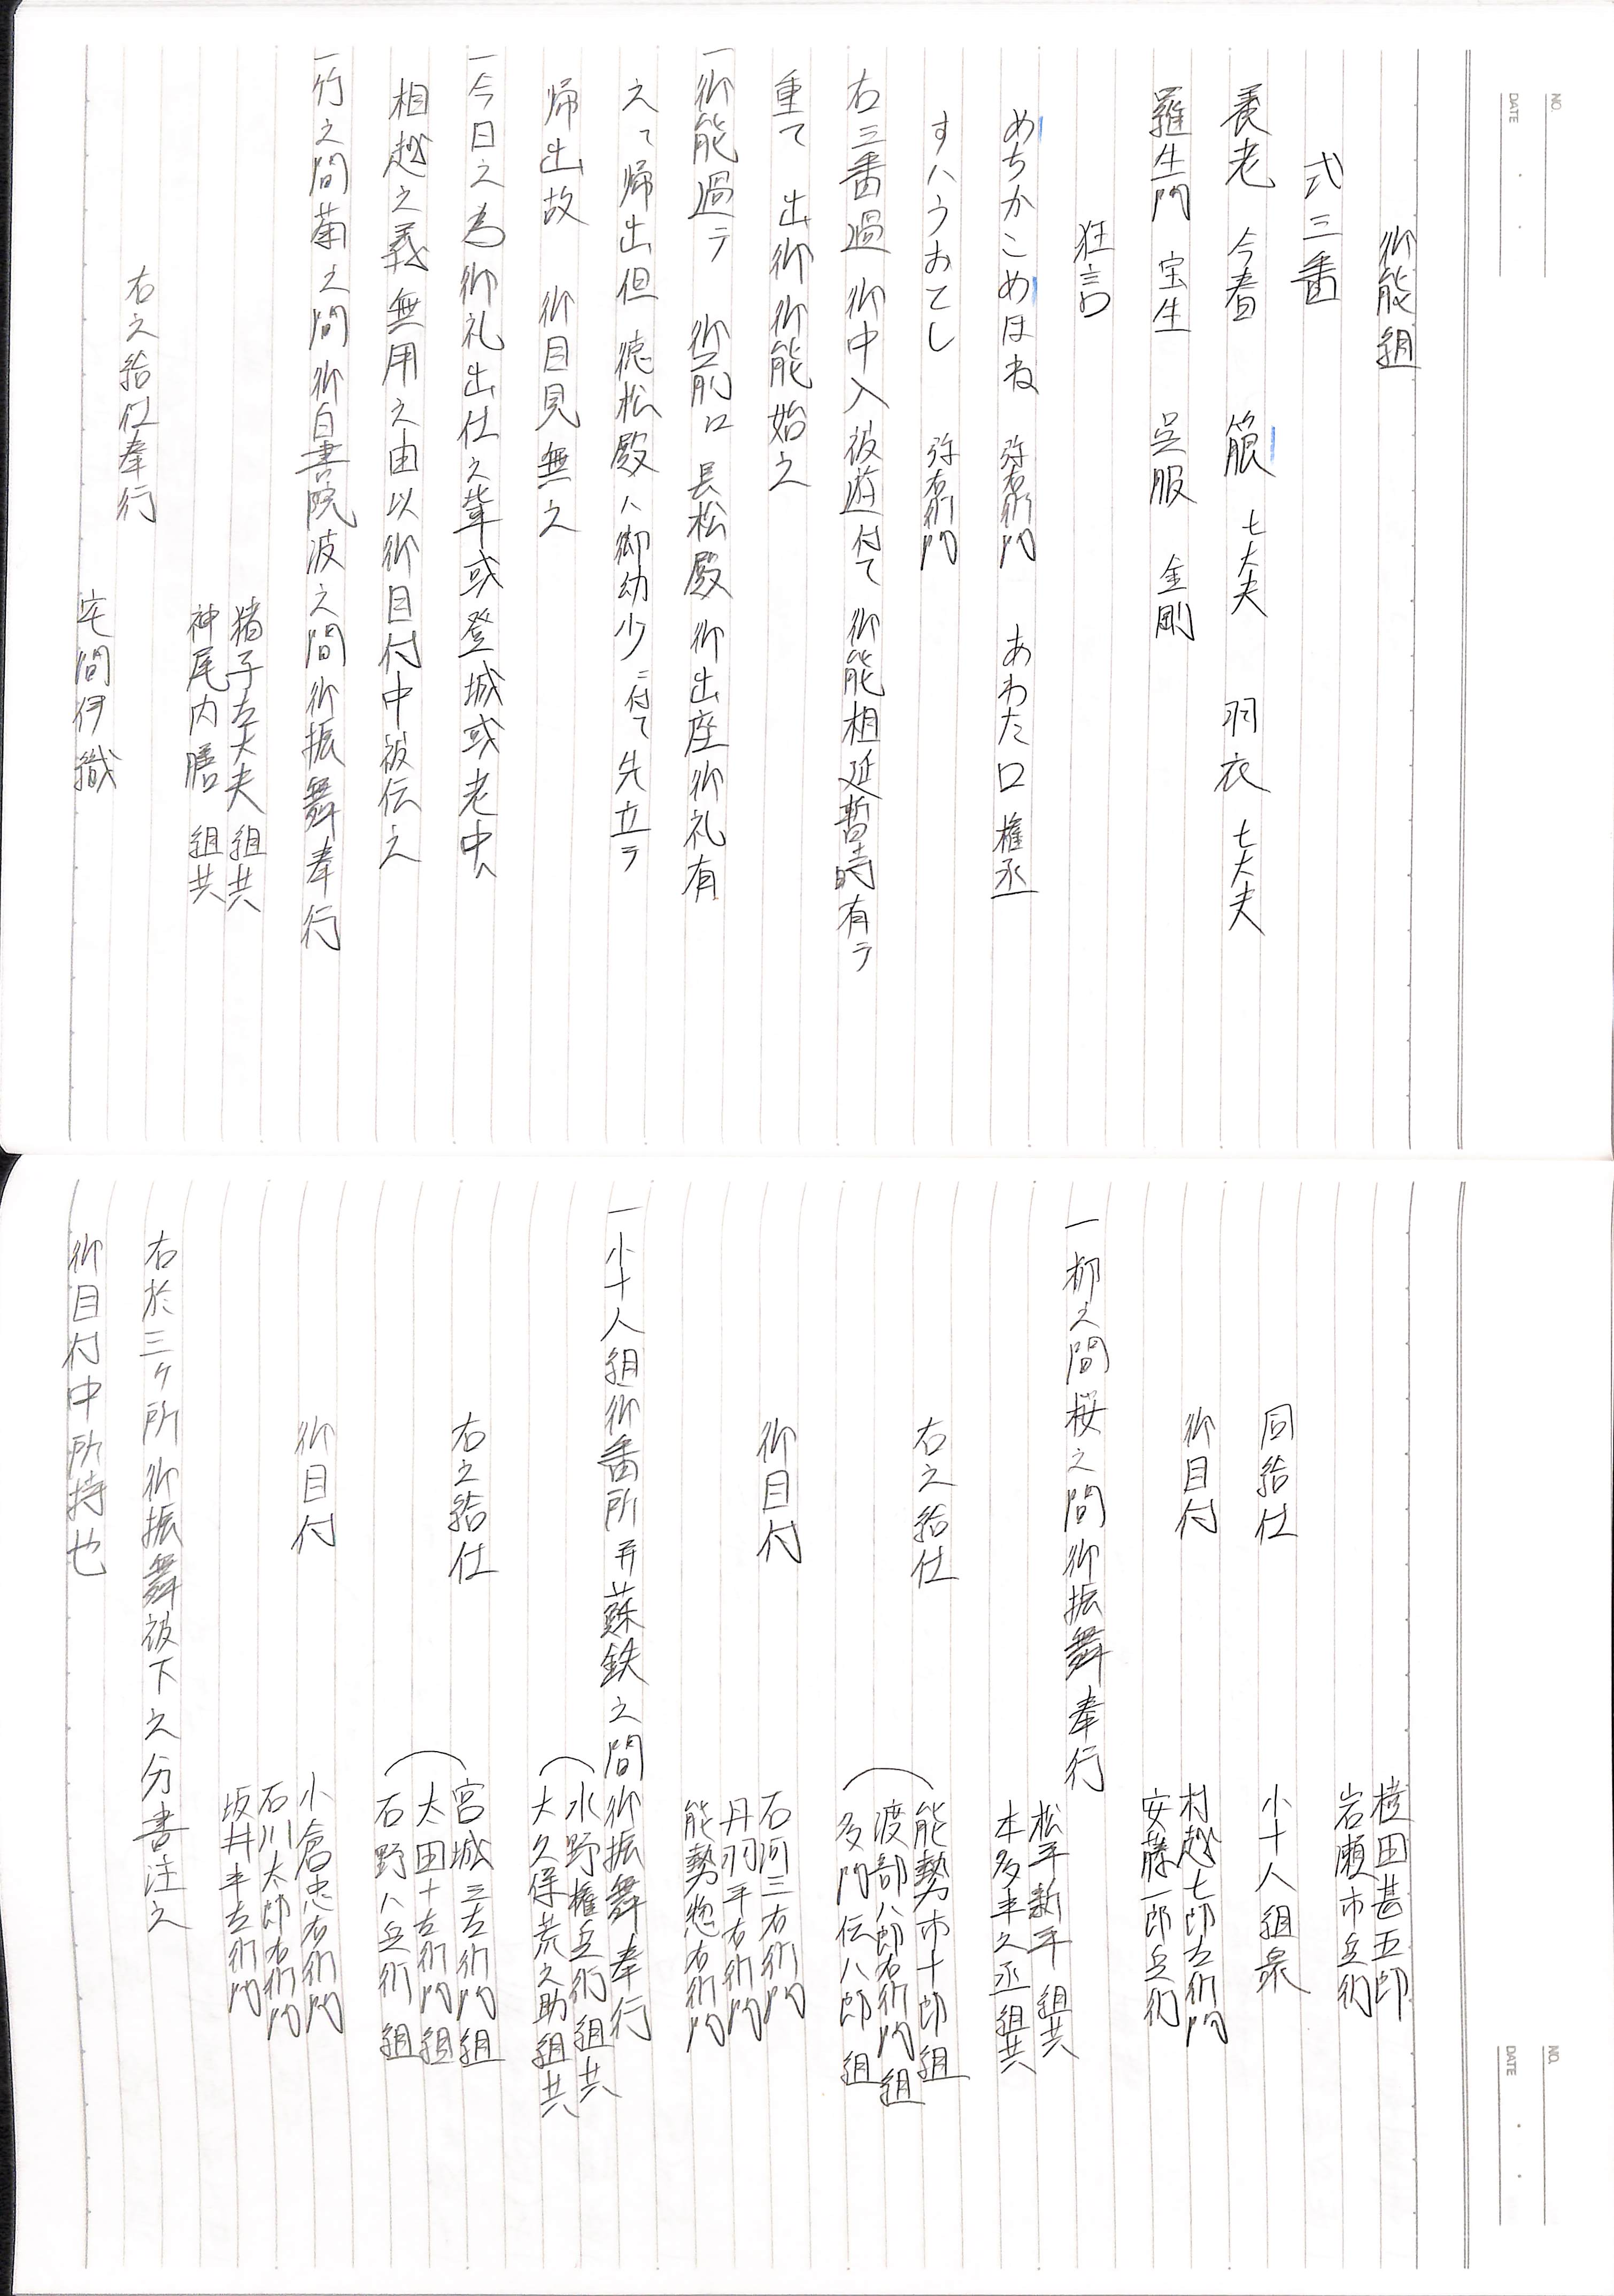 御能組
式三番
養老 今春 箙 七大夫 羽衣 七大夫
羅生門 宝生 呉服 金剛
狂言
めちかこめほね 弥右衛門 あわた口 権丞
すハうおてし 弥右衛門
右三番過 御中入被遊付て 御能相延暫時有テ
重て 出御御能始之
一御能過テ 御前ニ 長松殿 御出座御礼有
之て帰出但 徳松殿ハ御幼少ニ付て先立テ
帰出故 御目見無之
一今日之為御礼出仕之輩或登城或老中へ
相越之義無用之由以御目付中被伝之
一竹之間菊之間御白書院波之間御振舞奉行
猪子左大夫 組共
神尾内膳 組共
右之給仕奉行
宅間伊織
桂田甚五郎
岩瀬市兵衛
同給仕 小十人組衆
御目付 村越七郎左衛門
安藤一郎兵衛
一柳之間桜之間御振舞奉行
松平新平 組共
本多半之丞組共
右之給仕 能勢市十郎組
渡部八郎右衛門組
多門伝八郎 組
御目付 石河三右衛門
丹羽平右衛門
能勢惣右衛門
一小十人組御番所并蘇鉄之間御振舞奉行
水野権兵衛 組共
大久保荒之助組共
右之給仕 宮城三左衛門組
太田十左衛門組
石野八兵衛 組
御目付 小倉忠右衛門
石川太郎右衛門
坂井半左衛門
右於三ケ所御振舞被下之分書注之
御目付中所持也
NO.
DATE
NO.
DATE